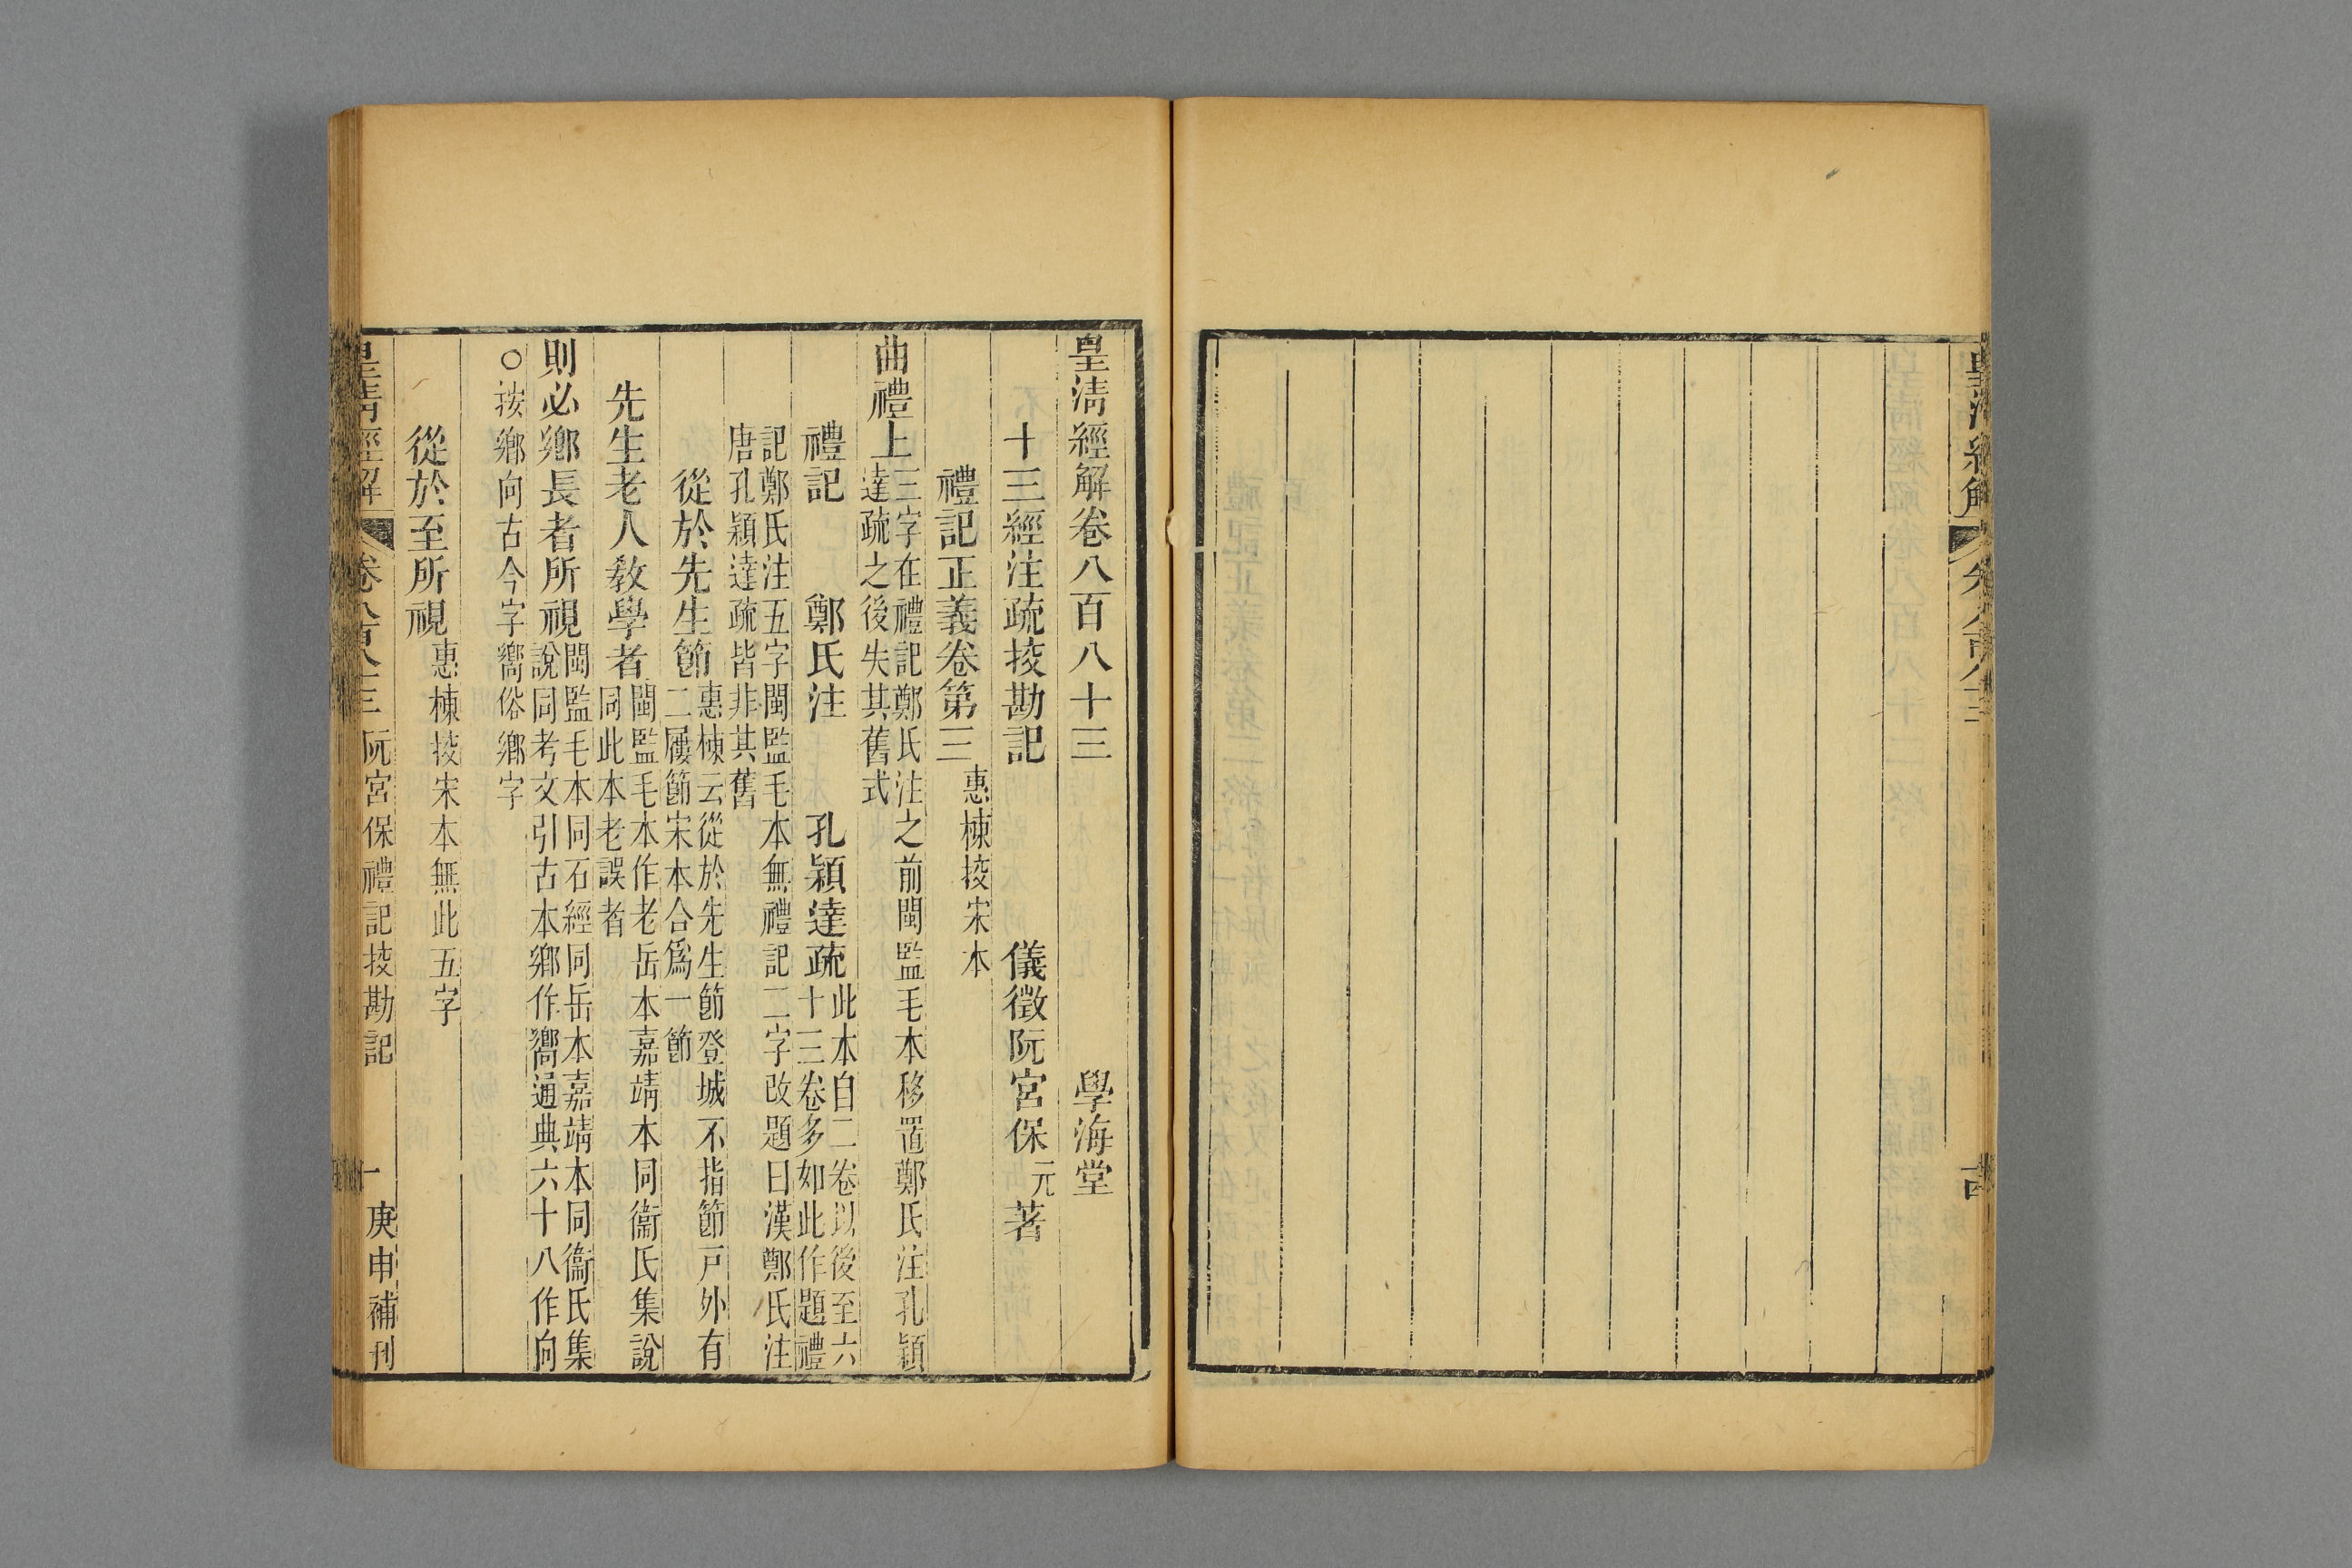 皇淸經解卷八百八十三 學海堂
十三經注疏挍勘記 儀徵阮宮保元著
禮記正義卷第三 惠棟挍宋本
曲禮上 三字在禮記鄭氏注之前閩監毛本移置鄭氏注孔穎
達疏之後失其舊式
禮記 鄭氏注 孔穎達疏 此本自二卷以後至六
十三卷多如此作題禮
記鄭氏注五字閩監毛本無禮記二字改題曰漢鄭氏注
唐孔穎達疏皆非其舊
從於先生節 惠棟云從於先生節登城不指節戸外有
二屨節宋本合爲一節
先生老人敎學者 閩監毛本作老岳本嘉靖本同衞氏集說
同此本老誤者
則必鄉長者所視 閩監毛本同石經同岳本嘉靖本同衞氏集
說同考文引古本鄉作嚮通典六十八作向
○按鄉向古今字嚮俗鄉字
從於至所視 惠棟挍宋本無此五字
皇淸經解 卷八百八十三 阮宮保禮記挍勘記 一 庚申補刊